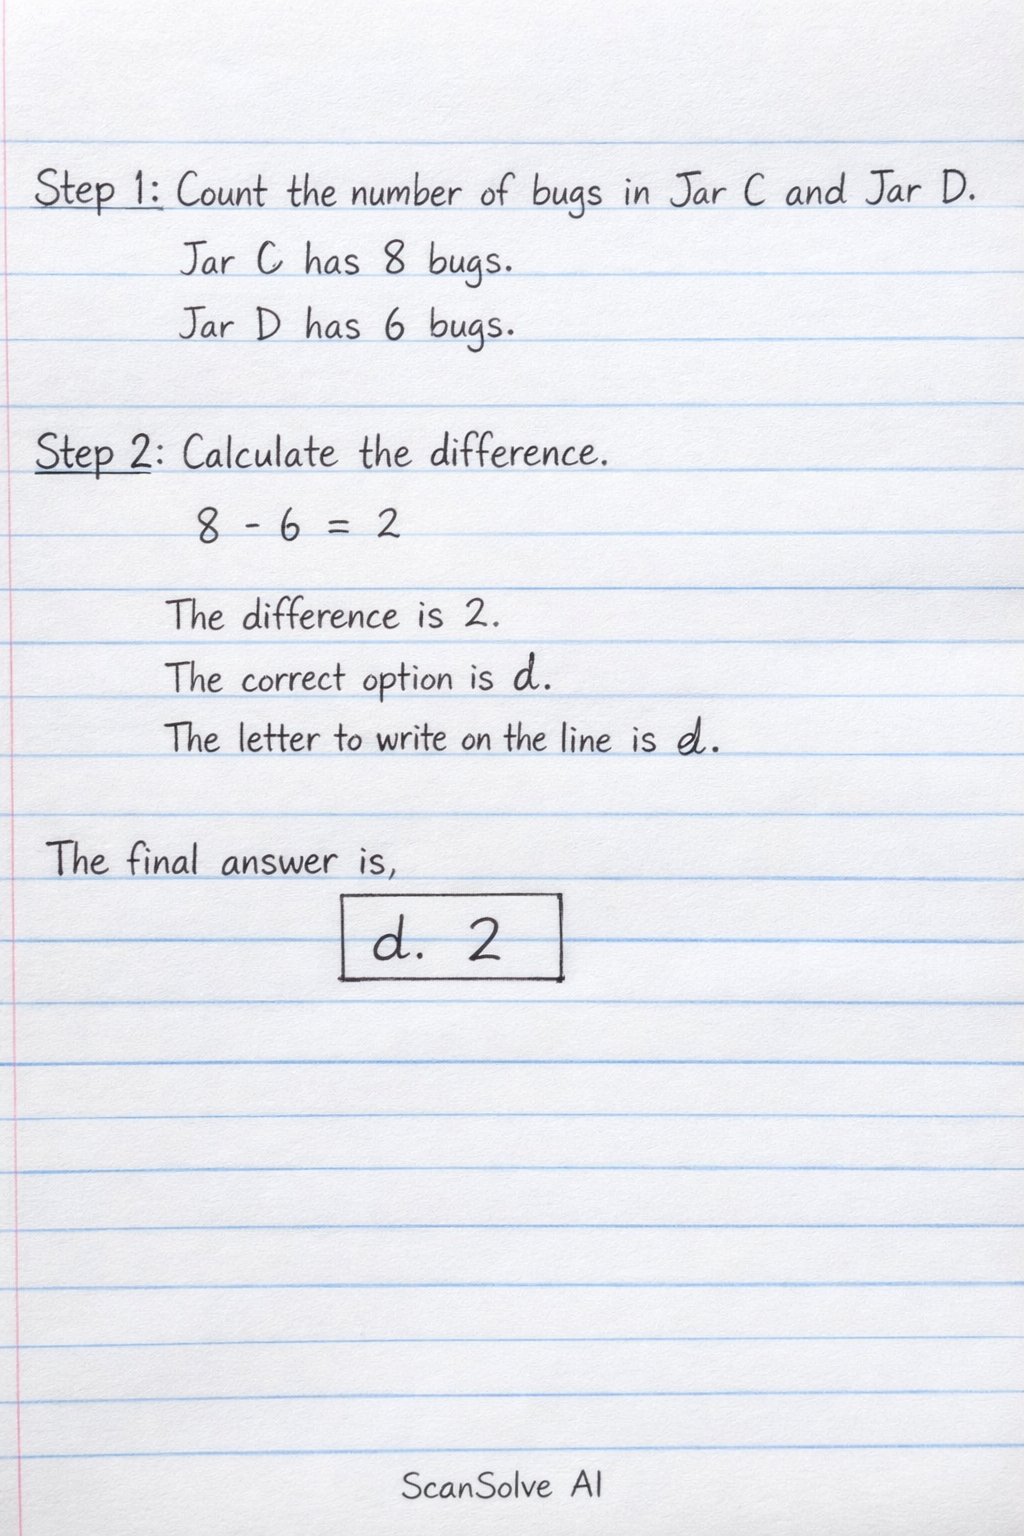 Step 1: Count the number of bugs in Jar C and Jar D.
Jar C has 8 bugs.
Jar D has 6 bugs.
Step 2: Calculate the difference.
8 - 6 = 2
The difference is 2.
The correct option is d.
The letter to write on the line is d.
The final answer is,
d. 2
ScanSolve AI